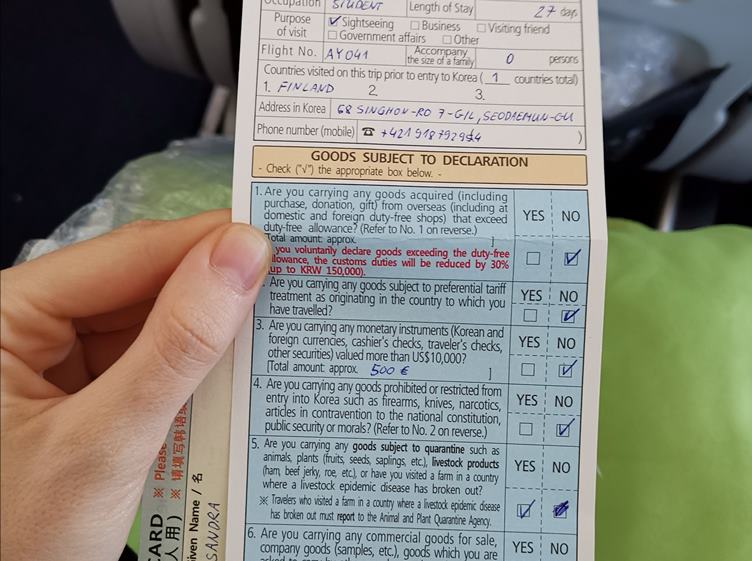 Occupation STUDENT Length of Stay 27 days
Purpose of visit ☑ Sightseeing ☐ Business ☐ Visiting friend
☐ Government affairs ☐ Other
Flight No. AY041 Accompany the size of a family 0 persons
Countries visited on this trip prior to entry to Korea ( 1 countries total)
1. FINLAND 2. 3.
Address in Korea 68 SINGHON-RO 7-GIL, SEODAEMUN-GU
Phone number (mobile) ☎ +421 918 792954 )
GOODS SUBJECT TO DECLARATION
- Check ("√") the appropriate box below. -
1. Are you carrying any goods acquired (including
purchase, donation, gift) from overseas (including at
domestic and foreign duty-free shops) that exceed
duty-free allowance? (Refer to No. 1 on reverse.)
YES NO
Total amount: approx. ]
you voluntarily declare goods exceeding the duty-free
allowance, the customs duties will be reduced by 30%
up to KRW 150,000).
☐ ☑
Are you carrying any goods subject to preferential tariff
treatment as originating in the country to which you
have travelled?
YES NO
☐ ☑
3. Are you carrying any monetary instruments (Korean and
foreign currencies, cashier's checks, traveler's checks,
other securities) valued more than US$10,000?
[Total amount: approx. 500 € ]
YES NO
☐ ☑
4. Are you carrying any goods prohibited or restricted from
entry into Korea such as firearms, knives, narcotics,
articles in contravention to the national constitution,
public security or morals? (Refer to No. 2 on reverse.)
YES NO
☐ ☑
5. Are you carrying any goods subject to quarantine such as
animals, plants (fruits, seeds, saplings, etc.), livestock products
(ham, beef jerky, roe, etc.), or have you visited a farm in a country
where a livestock epidemic disease has broken out?
※ Travelers who visited a farm in a country where a livestock epidemic disease
has broken out must report to the Animal and Plant Quarantine Agency.
YES NO
6. Are you carrying any commercial goods for sale,
company goods (samples, etc.), goods which you are
YES NO
CARD ※ Please
人用) ※ 请填写韩语或
Given Name / 名
SANDRA